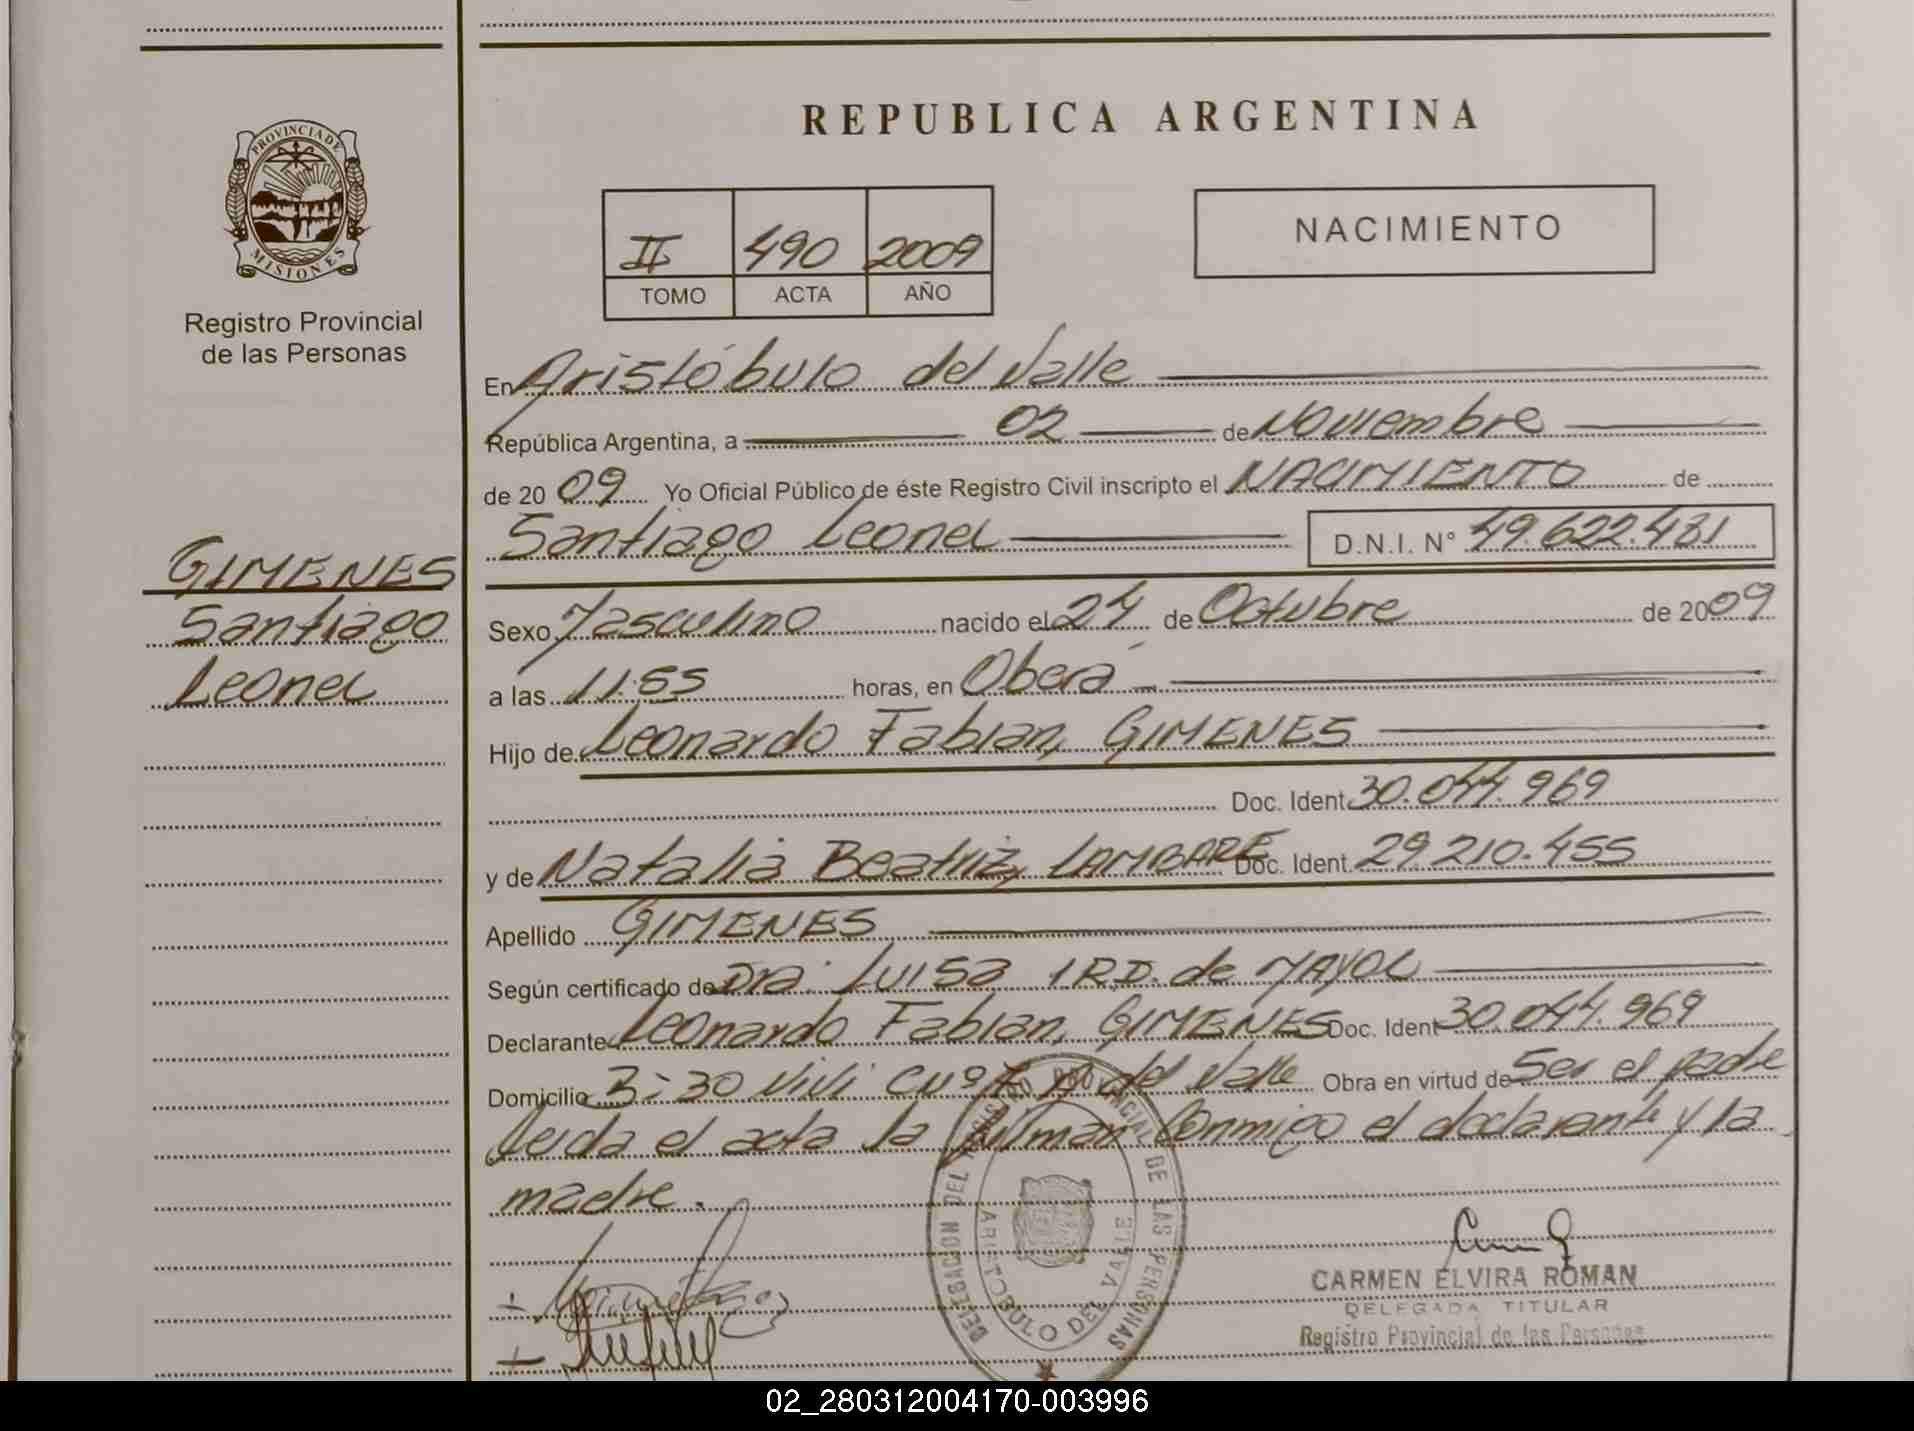 PROVINCIA DE
MISIONES
Registro Provincial
de las Personas
GIMENES
Santiago
Leonel
REPUBLICA ARGENTINA
II 490 2009
TOMO ACTA AÑO
NACIMIENTO
En Aristóbulo del Valle
República Argentina, a 02 de Noviembre
de 2009 Yo Oficial Público de éste Registro Civil inscripto el NACIMIENTO de
Santiago Leonel D.N.I. N° 49.622.431
Sexo Masculino nacido el 24 de Octubre de 2009
a las 11:55 horas, en Oberá
Hijo de Leonardo Fabian, GIMENES
Doc. Ident. 30.044.969
y de Natalia Beatriz, LAMBARE Doc. Ident. 29.210.455
Apellido GIMENES
Según certificado de Dra: Luisa I R.D. de MAYOL
Declarante Leonardo Fabian, GIMENES Doc. Ident 30.044.969
Domicilio B: 30 Vivi C Nº 7 A. del Valle Obra en virtud de Ser el padre
Leida el acta la firman Conmigo el declarante y la
madre.
DELEGACION DEL REGISTRO PROVINCIAL DE LAS PERSONAS
ARISTOBULO DEL VALLE
CARMEN ELVIRA ROMAN
DELEGADA TITULAR
Registro Provincial de las Personas
02_280312004170-003996